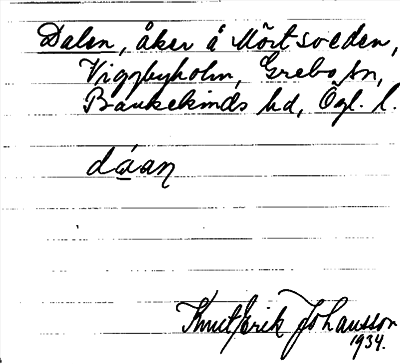 Dalen, åker å Mörtsveden,
Viggbyholm, Grebo sn,
Bankekinds hd, Ögl. l.
dáan
Knut Erik Johansson
1934.